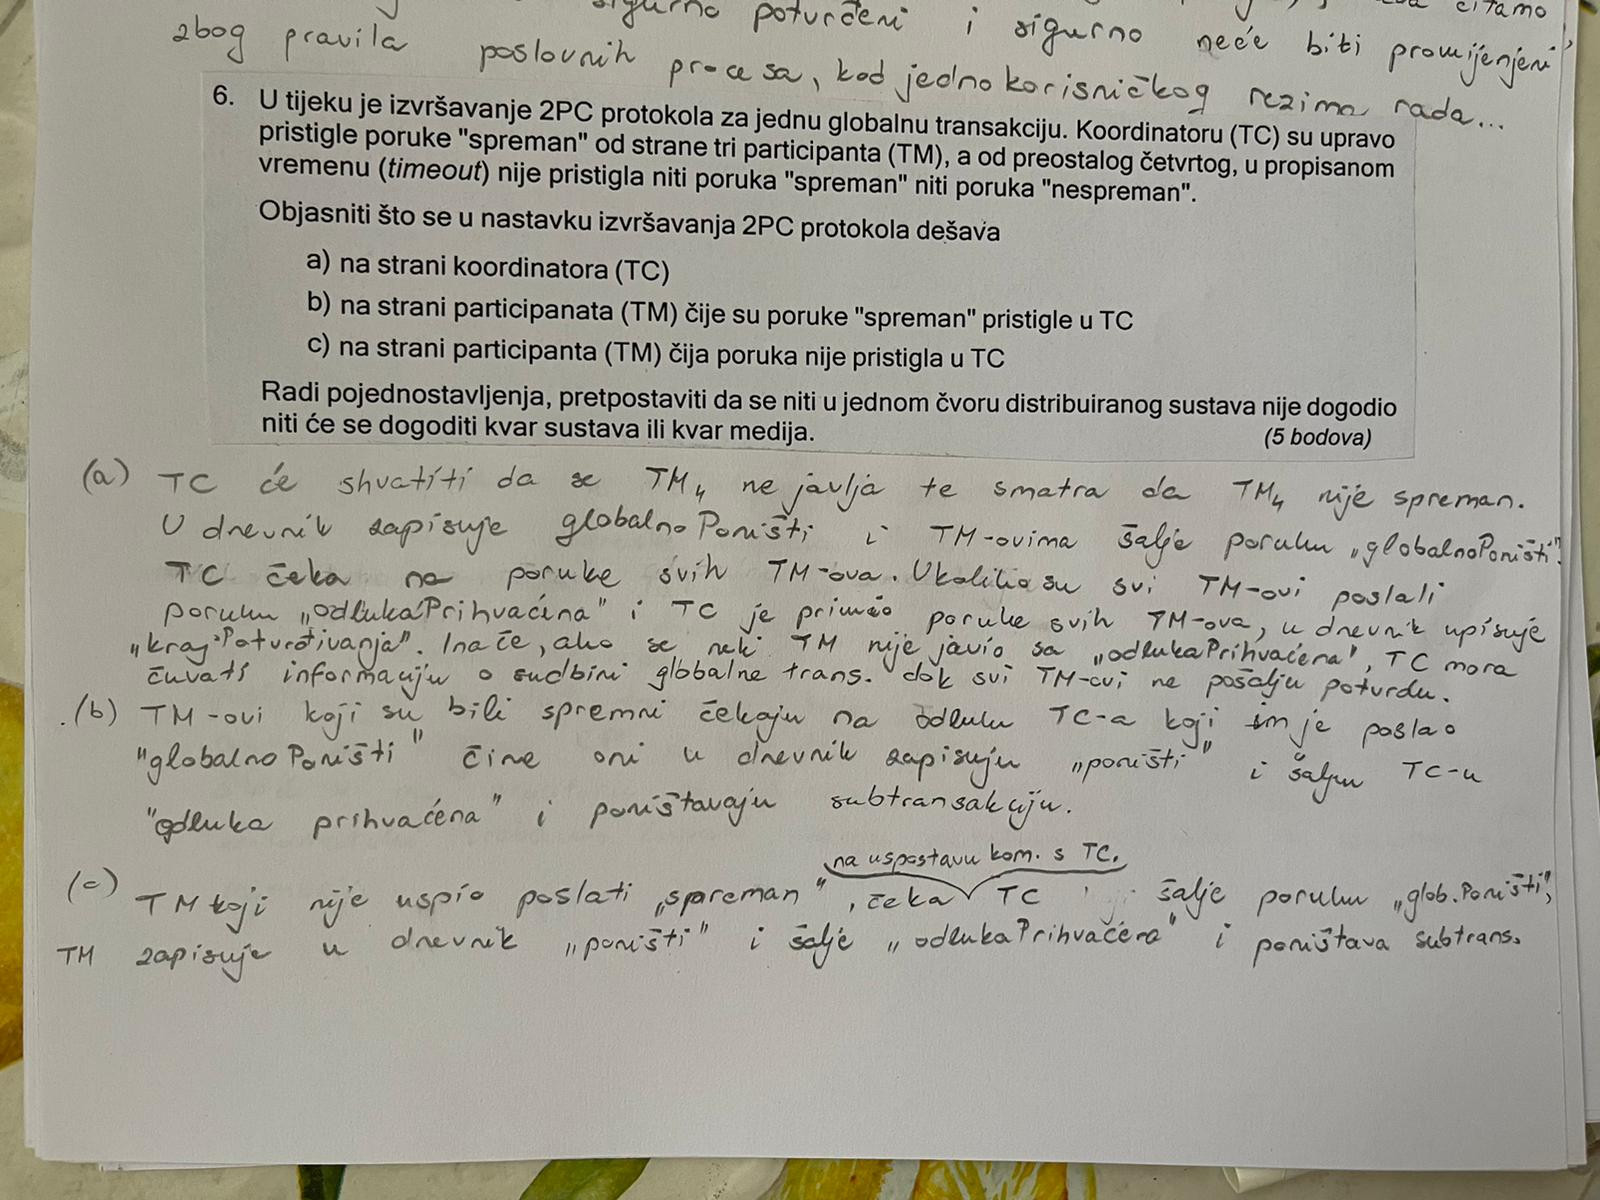 sigurno potvrđeni i sigurno neće biti promijenjeni
čitamo
zbog pravila poslovnih procesa, kod jednokorisničkog rezima rada...
6. U tijeku je izvršavanje 2PC protokola za jednu globalnu transakciju. Koordinatoru (TC) su upravo
pristigle poruke "spreman" od strane tri participanta (TM), a od preostalog četvrtog, u propisanom
vremenu (timeout) nije pristigla niti poruka "spreman" niti poruka "nespreman".
Objasniti što se u nastavku izvršavanja 2PC protokola dešava
a) na strani koordinatora (TC)
b) na strani participanata (TM) čije su poruke "spreman" pristigle u TC
c) na strani participanta (TM) čija poruka nije pristigla u TC
Radi pojednostavljenja, pretpostaviti da se niti u jednom čvoru distribuiranog sustava nije dogodio
niti će se dogoditi kvar sustava ili kvar medija. (5 bodova)
(a) TC će shvatiti da se TM4 ne javlja te smatra da TM4 nije spreman.
U dnevnik zapisuje globalnoPoništi i TM-ovima šalje poruku „globalnoPoništi".
TC čeka na poruke svih TM-ova. Ukoliko su svi TM-ovi poslali
poruku „odlukaPrihvaćena" i TC je primio poruke svih TM-ova, u dnevnik upisuje
„krajPotvrđivanja". Inače, ako se neki TM nije javio sa „odlukaPrihvaćena", TC mora
čuvati informaciju o sudbini globalne trans. dok svi TM-ovi ne pošalju potvrdu.
(b) TM-ovi koji su bili spremni čekaju na odluku TC-a koji im je poslao
"globalnoPoništi" čime oni u dnevnik zapisuju „poništi" i šalju TC-u
"odluka prihvaćena" i poništavaju subtransakciju.
na uspostavu kom. s TC.
(c) TM koji nije uspio poslati „spreman", čeka TC šalje poruku „glob.Poništi",
TM zapisuje u dnevnik „poništi" i šalje „odlukaPrihvaćena" i poništava subtrans.